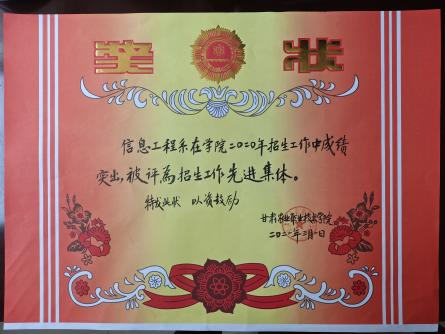 奖状
信息工程系在学院二〇二〇年招生工作中成绩
突出,被评为招生工作先进集体。
特发此状 以资鼓励
甘肃农业职业技术学院
二〇二一年三月一日